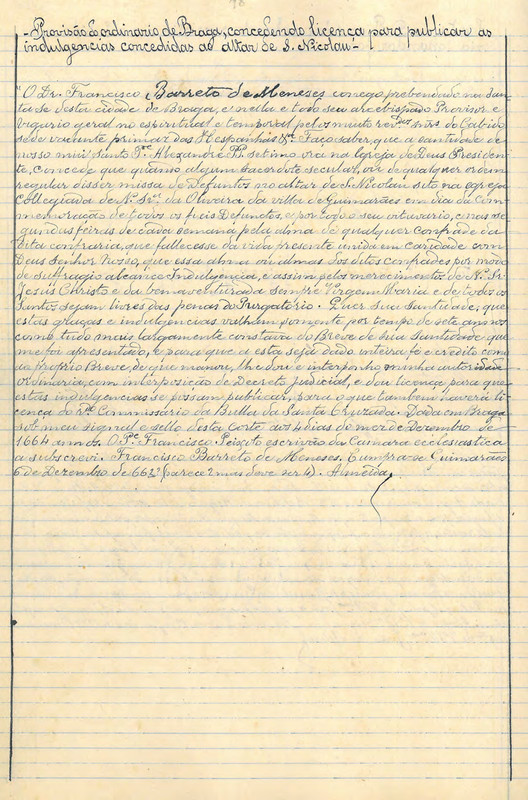 - Provisão do ordinario de Braga, concedendo licença para publicar as
indulgencias concedidas ao altar de S. Nicolau -
"O Dr. Francisco Barreto de Meneses conego prebendado na san-
ta sé desta cidade de Braga, e nella e todo seu arcebispado Provisor e
Vigario geral no espiritual e temporal pelos muito snrs. do Cabido
sede vacante primaz das Hespanhas &. Faço saber, que a santidade de
nosso mui santo P.e Alexandre Pp. setimo ora na Igreja de Deus Presiden-
te, concede que quando algum sacerdote secular, ou de qualquer ordem
regular disser missa de Defuntos no altar de S. Nicolau sito na egreja
Collegiada de N. Sr.a da Oliveira da villa de Guimarães em dia da Com-
memoração de todos os fieis Defunctos, e por todo o seu oitavario, e nas se-
gundas feiras de cada semana pela alma de qualquer confrade da
dita confraria, que fallecesse da vida presente unida em caridade com
Deus Senhor Nosso, que essa alma ou almas dos ditos confrades por modo
de suffragio alcance Indulgencia, e assim pelos merecimentos de N. Sr.
Jesus Christo e da bemaventurada sempre Virgem Maria e de todos os
Santos sejam livres das penas do Purgatorio. Quer sua santidade, que
estas graças e indulgencias valham somente por tempo de sete annos
como tudo mais largamente constava do Breve de Sua Santidade que
me foi apresentado, e para que a esta seja dado inteira fe e credito como
ao proprio Breve, de que manou, lhe dou e interponho minha autoridade
ordinaria, com interposição de Decreto judicial, e dou licença para que
estas indulgencias se possam publicar, para o que tambem haverá li-
cença do Commissario da Bulla da Santa Cruzada. Dada em Braga
sob meu signal e sello desta corte aos 4 dias do mez de Dezembro de
1664 annos. O P.e Francisco Peixoto escrivão da Camara ecclesiastica
a subscrevi. Francisco Barreto de Meneses. Cumpra-se Guimarães
6 de Dezembro de 662 (parece 2 mas deve ser 4). Almeida.